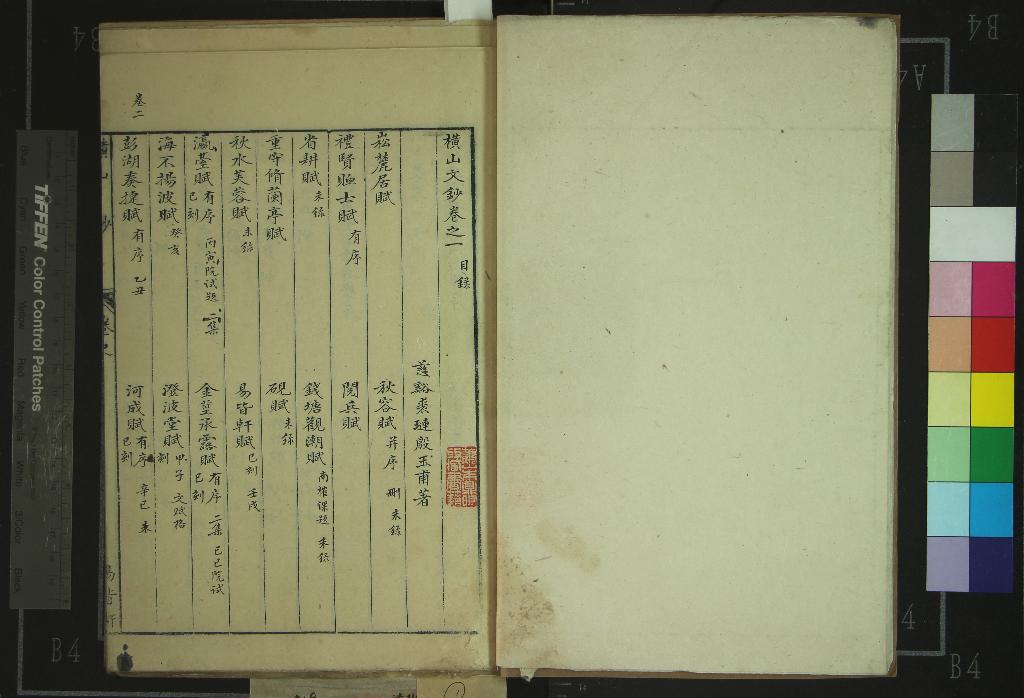 橫山文鈔卷之一 目錄
慈谿裘璉殷玉甫著
崧麓居賦 秋容賦 并序 刪 未錄
禮賢賑士賦 有序 閱兵賦
省耕賦 未錄 錢塘觀潮賦 南雍課題 未錄
重脩蘭亭賦 硯賦 未錄
秋水芙蓉賦 未錄 易皆軒賦 已刻 壬戌
瀛臺賦 有序 已刻 丙寅院試題 二集 金莖承露賦 有序 已刻 二集 己巳院試
海不揚波賦 癸亥 澄波堂賦 已刻 甲子 文賦格
彭湖奏捷賦 有序 乙丑 河成賦 有序 已刻 辛巳 未
卷二
TIFFEN Color Control Patches
Blue
Cyan
Green
Yellow
Red
Magenta
White
3/Color
Black
B4
B4
B4
B4
A4